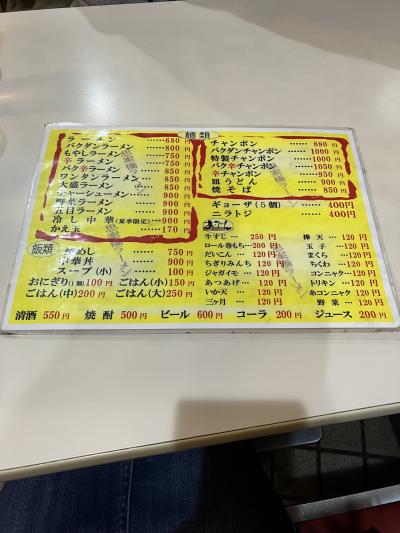 麺類
ラーメン ……680円
バクダンラーメン ……800円
もやしラーメン ……750円
辛ラーメン ……750円
バク辛ラーメン ……850円
ワンタンラーメン ……900円
大盛ラーメン ……850円
チャーシューメン ……900円
野菜ラーメン ……900円
五目ラーメン ……900円
冷し中華(夏季限定)…900円
かえ玉 ……170円
チャンポン ……880円
バクダンチャンポン ……1000円
特製チャンポン ……1000円
バク辛チャンポン ……1050円
辛チャンポン ……950円
皿うどん ……900円
焼そば ……850円
ギョーザ(5個) ……400円
ニラトジ ……400円
飯類
焼めし ……750円
中華丼 ……900円
スープ(小) ……100円
おにぎり(1個)100円 ごはん(小)150円
ごはん(中)200円 ごはん(大)250円
おでん
牛すじ… 250円
ロール巻もち…200円
だいこん… 120円
ちぎりみんち 120円
ジャガイモ… 120円
あつあげ… 120円
いか天 … 120円
三ヶ月 … 120円
棒天 …120円
玉子 …120円
まくら …120円
ちくわ …120円
コンニャク…120円
トリキン …120円
糸コンニャク 120円
野菜 …120円
清酒 550円 焼酎 500円 ビール 600円 コーラ 200円 ジュース 200円